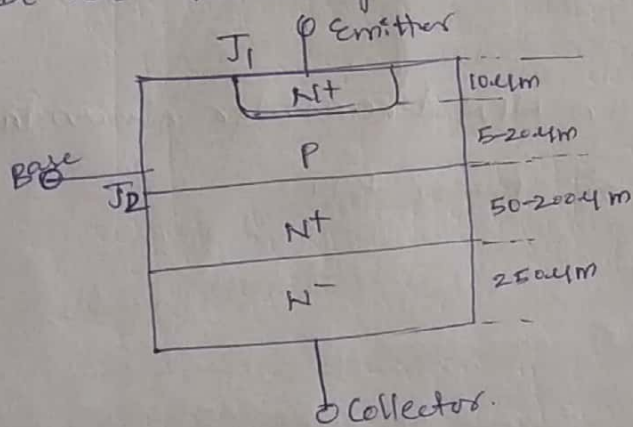 Emitter
J1
N+
10µm
P
5-20µm
Base
J2
N+
50-200µm
N-
250µm
Collector.